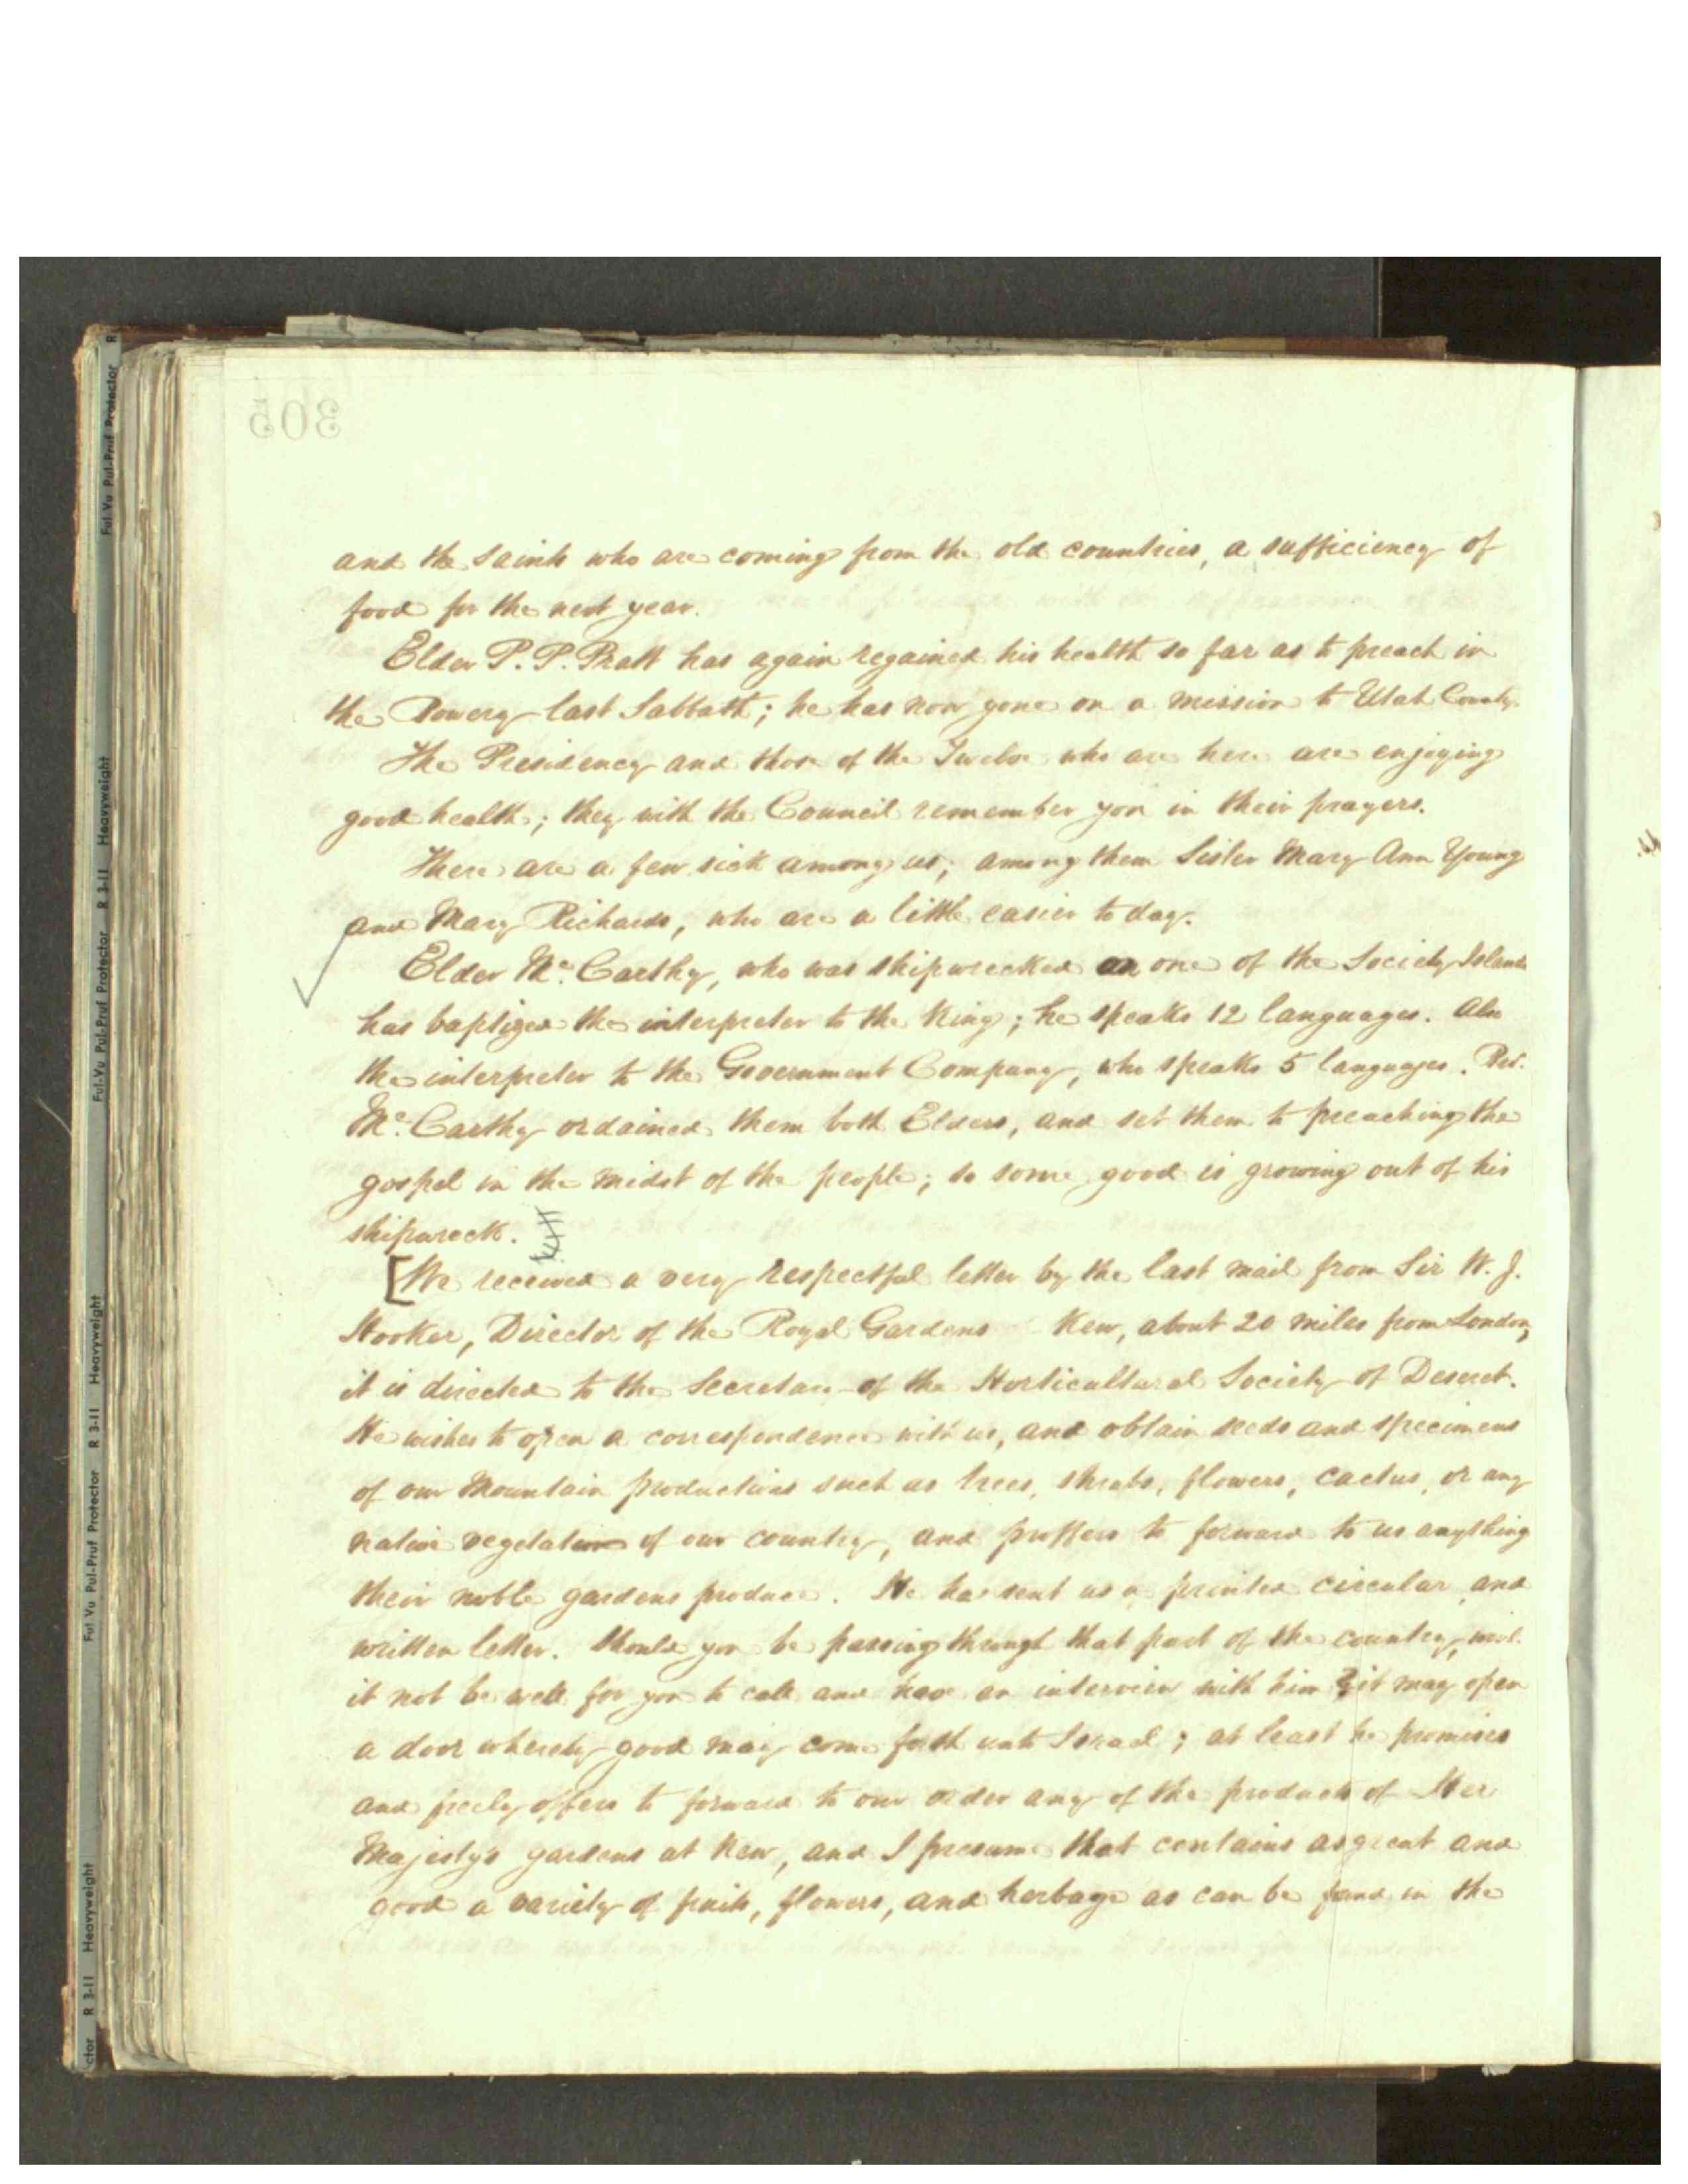 305
and the Saints who are coming from the old countries, a sufficiency of
food for the next year.
Elder P. P. Pratt has again regained his health so far as to preach in
the Bowery last Sabbath; he has now gone on a mission to Utah County.
The Presidency and those of the Twelve who are here are enjoying
good health; they with the Council remember you in their prayers.
There are a few sick among us; among them Sister Mary Ann Young
and Mary Richards, who are a little easier to day.
Elder Mc. Carthy, who was shipwrecked on one of the Society Islands
has baptized the interpreter to the King; he speaks 12 languages. Also
the interpreter to the Government Company, who speaks 5 languages.
Mc. Carthy ordained them both Elders, and set them to preaching the
gospel in the midst of the people; so some good is growing out of his
shipwreck.
[We received a very respectful letter by the last mail from Sir W. J.
Hooker, Director of the Royal Gardens Kew, about 20 miles from London,
it is directed to the Secretary of the Horticultural Society of Deseret.
He wishes to open a correspondence with us, and obtain seeds and specimens
of our Mountain productions such as trees, shrubs, flowers, cactus, or any
native vegetation of our country, and proffers to forward to us anything
their noble gardens produce. He has sent us a printed circular and
written letter. Should you be passing through that part of the country, will
it not be well for you to call and have an interview with him? it may open
a door whereby good may come forth unto Israel; at least he promises
and freely offers to forward to our order any of the products of Her
Majesty's gardens at Kew, and I presume that contains as great and
good a variety of fruits, flowers, and herbage as can be found in the
Ful-Vu Pul-Pruf Protector R 3-11 Heavyweight
Ful-Vu Pul-Pruf Protector R 3-11 Heavyweight
Ful-Vu Pul-Pruf Protector R 3-11 Heavyweight